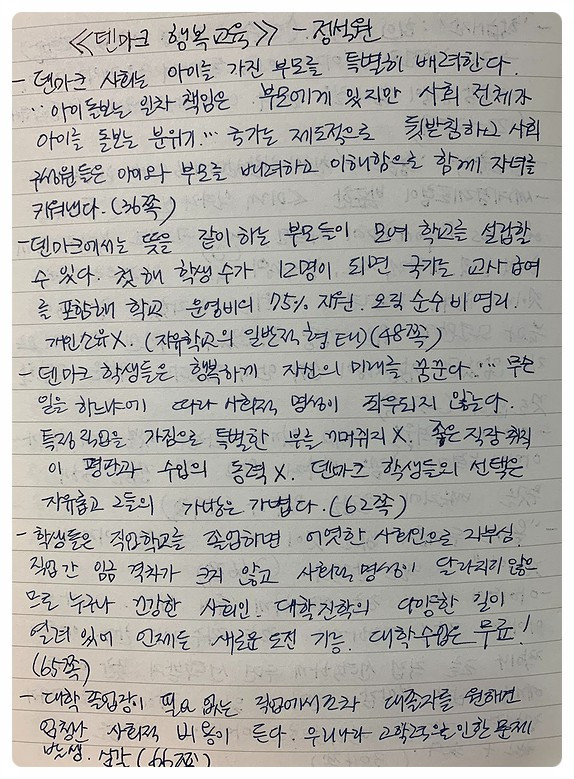 《덴마크 행복교육》 - 정석원
- 덴마크 사회는 아이를 가진 부모를 특별히 배려한다.
… 아이돌보는 일차 책임은 부모에게 있지만 사회 전체가
아이를 돌보는 분위기.… 국가는 제도적으로 뒷받침하고 사회
구성원들은 아이와 부모를 배려하고 이해함으로 함께 자녀를
키워낸다. (36쪽)
- 덴마크에서는 뜻을 같이 하는 부모들이 모여 학교를 설립할
수 있다. 첫해 학생 수가 12명이 되면 국가는 교사 급여
를 포함해 학교 운영비의 75% 지원. 오직 순수 비영리.
개인소유X. (자유학교의 일반적 형태) (48쪽)
- 덴마크 학생들은 행복하게 자신의 미래를 꿈꾼다.… 무슨
일을 하느냐에 따라 사회적 명성이 좌우되지 않는다.
특정 직업을 가짐으로 특별한 부를 거머쥐지 X. 좋은 직장 취직
이 평판과 수입의 동력 X. 덴마크 학생들의 선택은
자유롭고 그들의 가방은 가볍다. (62쪽)
- 학생들은 직업학교를 졸업하면 어엿한 사회인으로 자부심.
직업 간 임금 격차가 크지 않고 사회적 명성이 달라지지 않으
므로 누구나 건강한 사회인. 대학 진학의 다양한 길이
열려 있어 언제든 새로운 도전 가능. 대학 수업은 무료!
(65쪽)
- 대학 졸업장이 필요 없는 직업에서조차 대졸자를 원하면
엄청난 사회적 비용이 든다. 우리나라 고학력으로 인한 문제
발생. 심각 (66쪽)